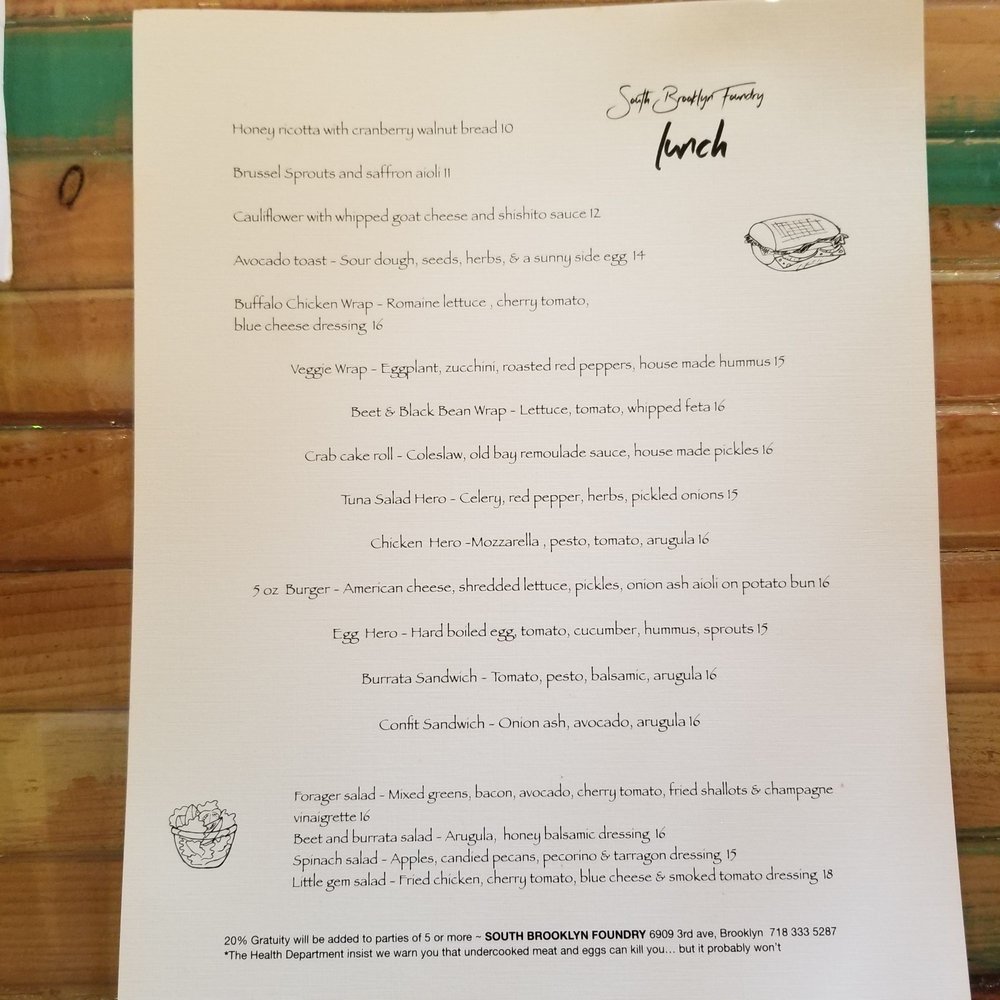 South Brooklyn Foundry
lunch
Honey ricotta with cranberry walnut bread 10
Brussel Sprouts and saffron aioli 11
Cauliflower with whipped goat cheese and shishito sauce 12
Avocado toast – Sour dough, seeds, herbs, & a sunny side egg 14
Buffalo Chicken Wrap – Romaine lettuce , cherry tomato,
blue cheese dressing 16
Veggie Wrap – Eggplant, zucchini, roasted red peppers, house made hummus 15
Beet & Black Bean Wrap – Lettuce, tomato, whipped feta 16
Crab cake roll – Coleslaw, old bay remoulade sauce, house made pickles 16
Tuna Salad Hero – Celery, red pepper, herbs, pickled onions 15
Chicken Hero -Mozzarella , pesto, tomato, arugula 16
5 oz Burger – American cheese, shredded lettuce, pickles, onion ash aioli on potato bun 16
Egg Hero – Hard boiled egg, tomato, cucumber, hummus, sprouts 15
Burrata Sandwich – Tomato, pesto, balsamic, arugula 16
Confit Sandwich – Onion ash, avocado, arugula 16
Forager salad – Mixed greens, bacon, avocado, cherry tomato, fried shallots & champagne
vinaigrette 16
Beet and burrata salad – Arugula, honey balsamic dressing 16
Spinach salad – Apples, candied pecans, pecorino & tarragon dressing 15
Little gem salad – Fried chicken, cherry tomato, blue cheese & smoked tomato dressing 18
20% Gratuity will be added to parties of 5 or more ~ SOUTH BROOKLYN FOUNDRY 6909 3rd ave, Brooklyn 718 333 5287
*The Health Department insist we warn you that undercooked meat and eggs can kill you… but it probably won't